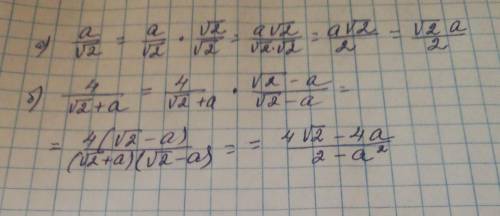 а) a/√2 = a/√2 · √2/√2 = a√2/√2·√2 = a√2/2 = √2 a/2
б) 4/√2+a = 4/√2+a · √2-a/√2-a =
= 4(√2-a)/(√2+a)(√2-a) = = 4√2-4a/2-a²